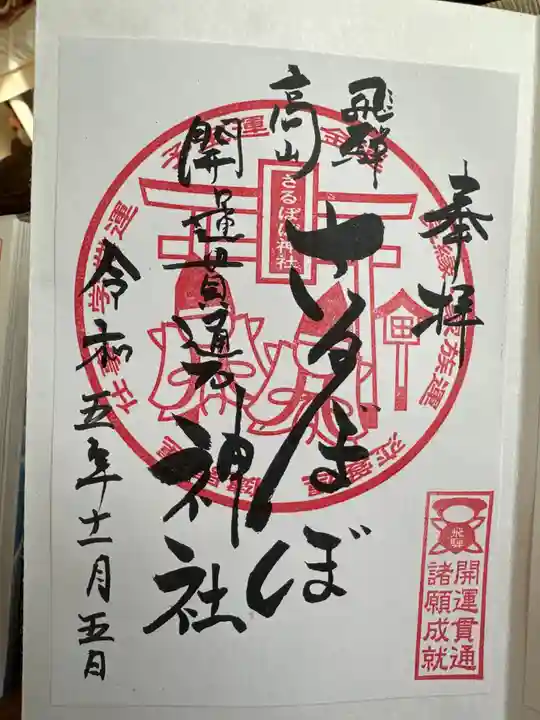 奉拝
飛騨
高山
さるぼぼ
開運貫通石
神社
令和五年十一月五日
さるぼぼ神社
飛騨
開運貫通
諸願成就
家族運